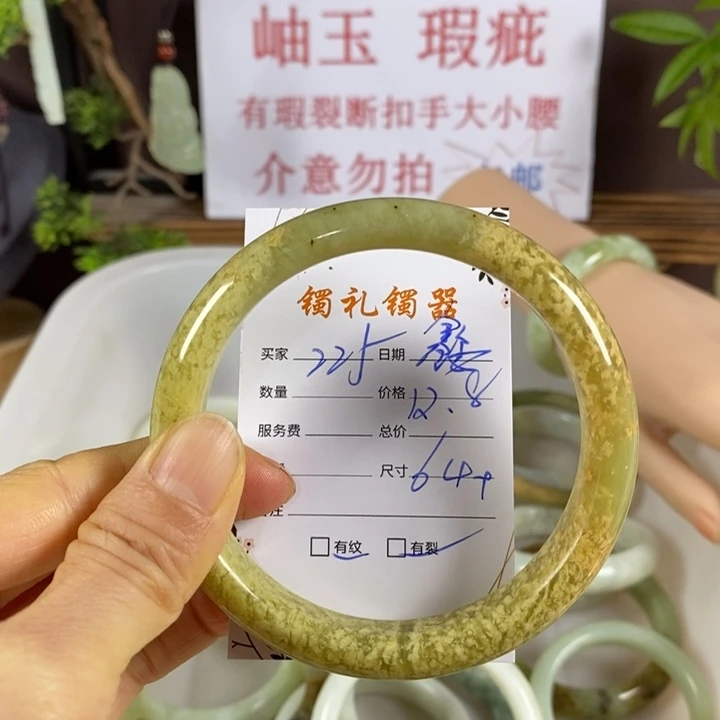 岫玉 瑕疵
有瑕裂断扣手大小腰
介意勿拍
邮
镯礼镯器
买家 225 日期
数量 价格 12.8
服务费 总价
尺寸 64+
注
有纹 有裂